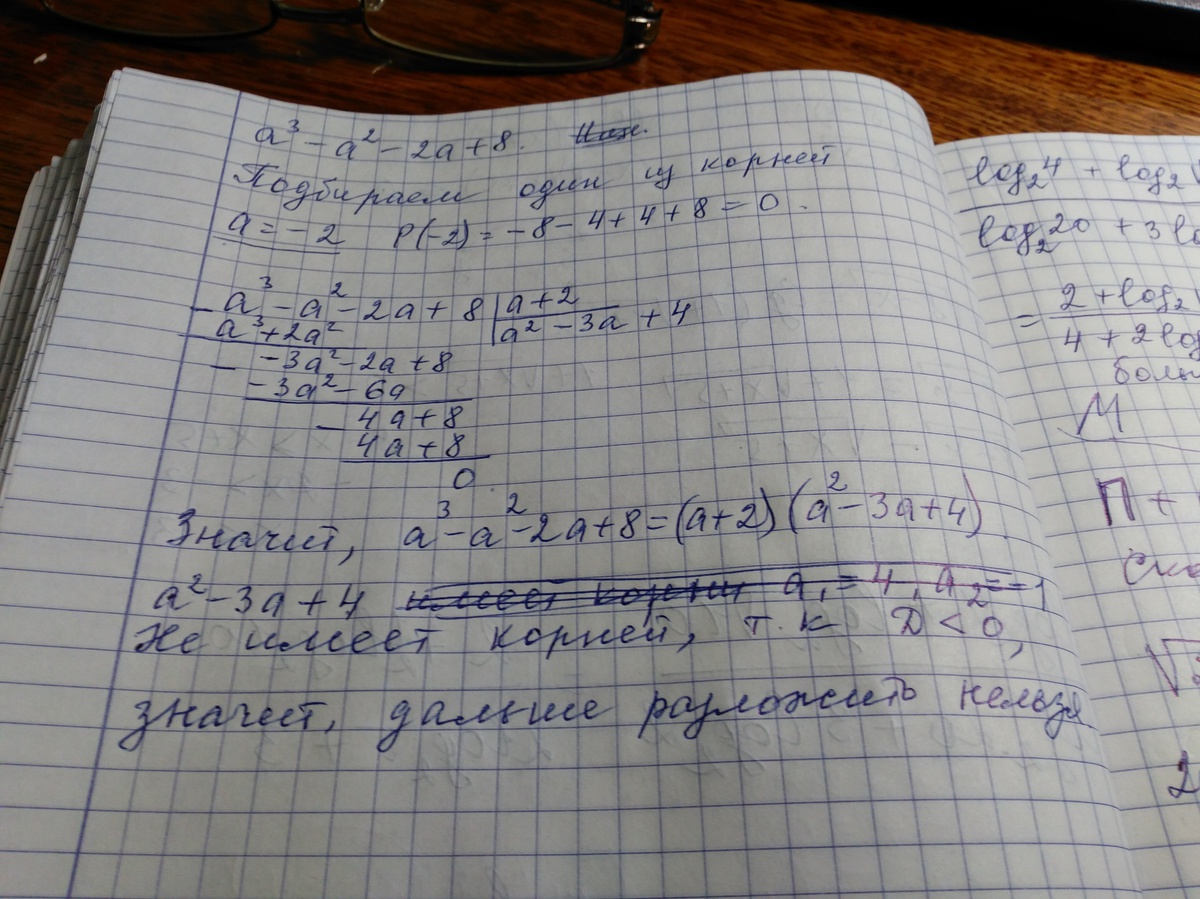 a³ - a² - 2a + 8.
Подбираем один из корней
a = -2 P(-2) = -8 - 4 + 4 + 8 = 0.
a³ - a² - 2a + 8 | a + 2
a³ + 2a² | a² - 3a + 4
-3a² - 2a + 8
-3a² - 6a
4a + 8
4a + 8
0
Значит, a³ - a² - 2a + 8 = (a + 2)(a² - 3a + 4)
a² - 3a + 4 имеет корни a₁ = 4, a₂ = -1
не имеет корней, т.к D < 0,
значит, дальше разложить нельзя
log₂4 + log₂√
log₂20 + 3 lo
= 2 + log₂
4 + 2 log
боль
М
П +
ско
√
2